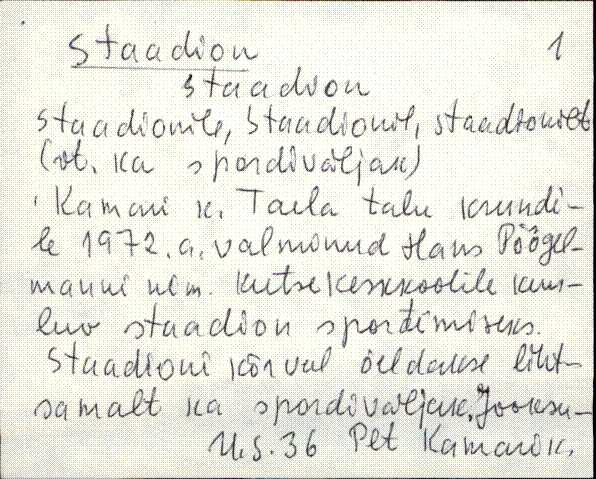 Staadion 1
staadion
staadionile, staadionil, staadionilt
(vt. ka spordiväljak)
Kamari k. Taela talu krundi-
le 1972. a. valminud Hans Pöögel-
manni nim. kutsekeskkoolile kuu-
luv staadion sportimiseks.
Staadioni kõrval öeldakse liht-
samalt ka spordiväljak. Jooksu-
U.S. 36 Plt Kamari k.